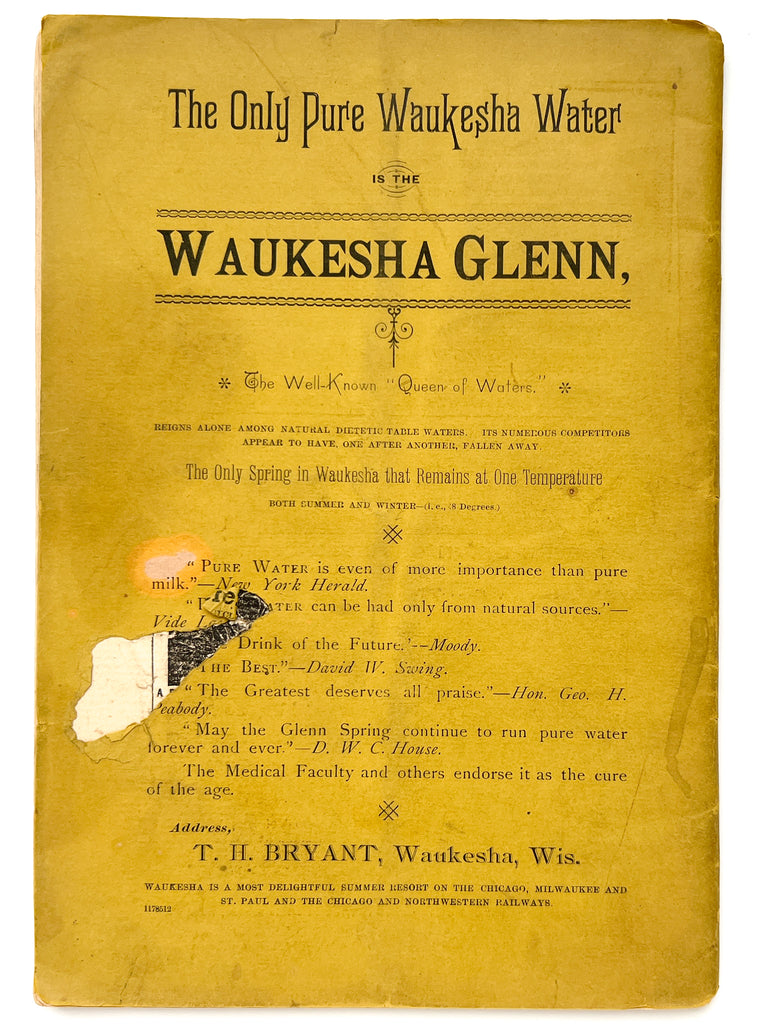 The Only Pure Waukesha Water
IS THE
WAUKESHA GLENN,
* The Well-Known "Queen of Waters." *
REIGNS ALONE AMONG NATURAL DIETETIC TABLE WATERS. ITS NUMEROUS COMPETITORS
APPEAR TO HAVE, ONE AFTER ANOTHER, FALLEN AWAY.
The Only Spring in Waukesha that Remains at One Temperature
BOTH SUMMER AND WINTER—(i. e., 48 Degrees.)
"PURE WATER is even of more importance than pure
milk."—New York Herald.
" WATER can be had only from natural sources."—
Vide
re
Drink of the Future.'--Moody.
THE BEST."—David W. Swing.
"The Greatest deserves all praise."—Hon. Geo. H.
Peabody.
"May the Glenn Spring continue to run pure water
forever and ever."—D. W. C. House.
The Medical Faculty and others endorse it as the cure
of the age.
Address,
T. H. BRYANT, Waukesha, Wis.
WAUKESHA IS A MOST DELIGHTFUL SUMMER RESORT ON THE CHICAGO, MILWAUKEE AND
ST. PAUL AND THE CHICAGO AND NORTHWESTERN RAILWAYS.
1178512